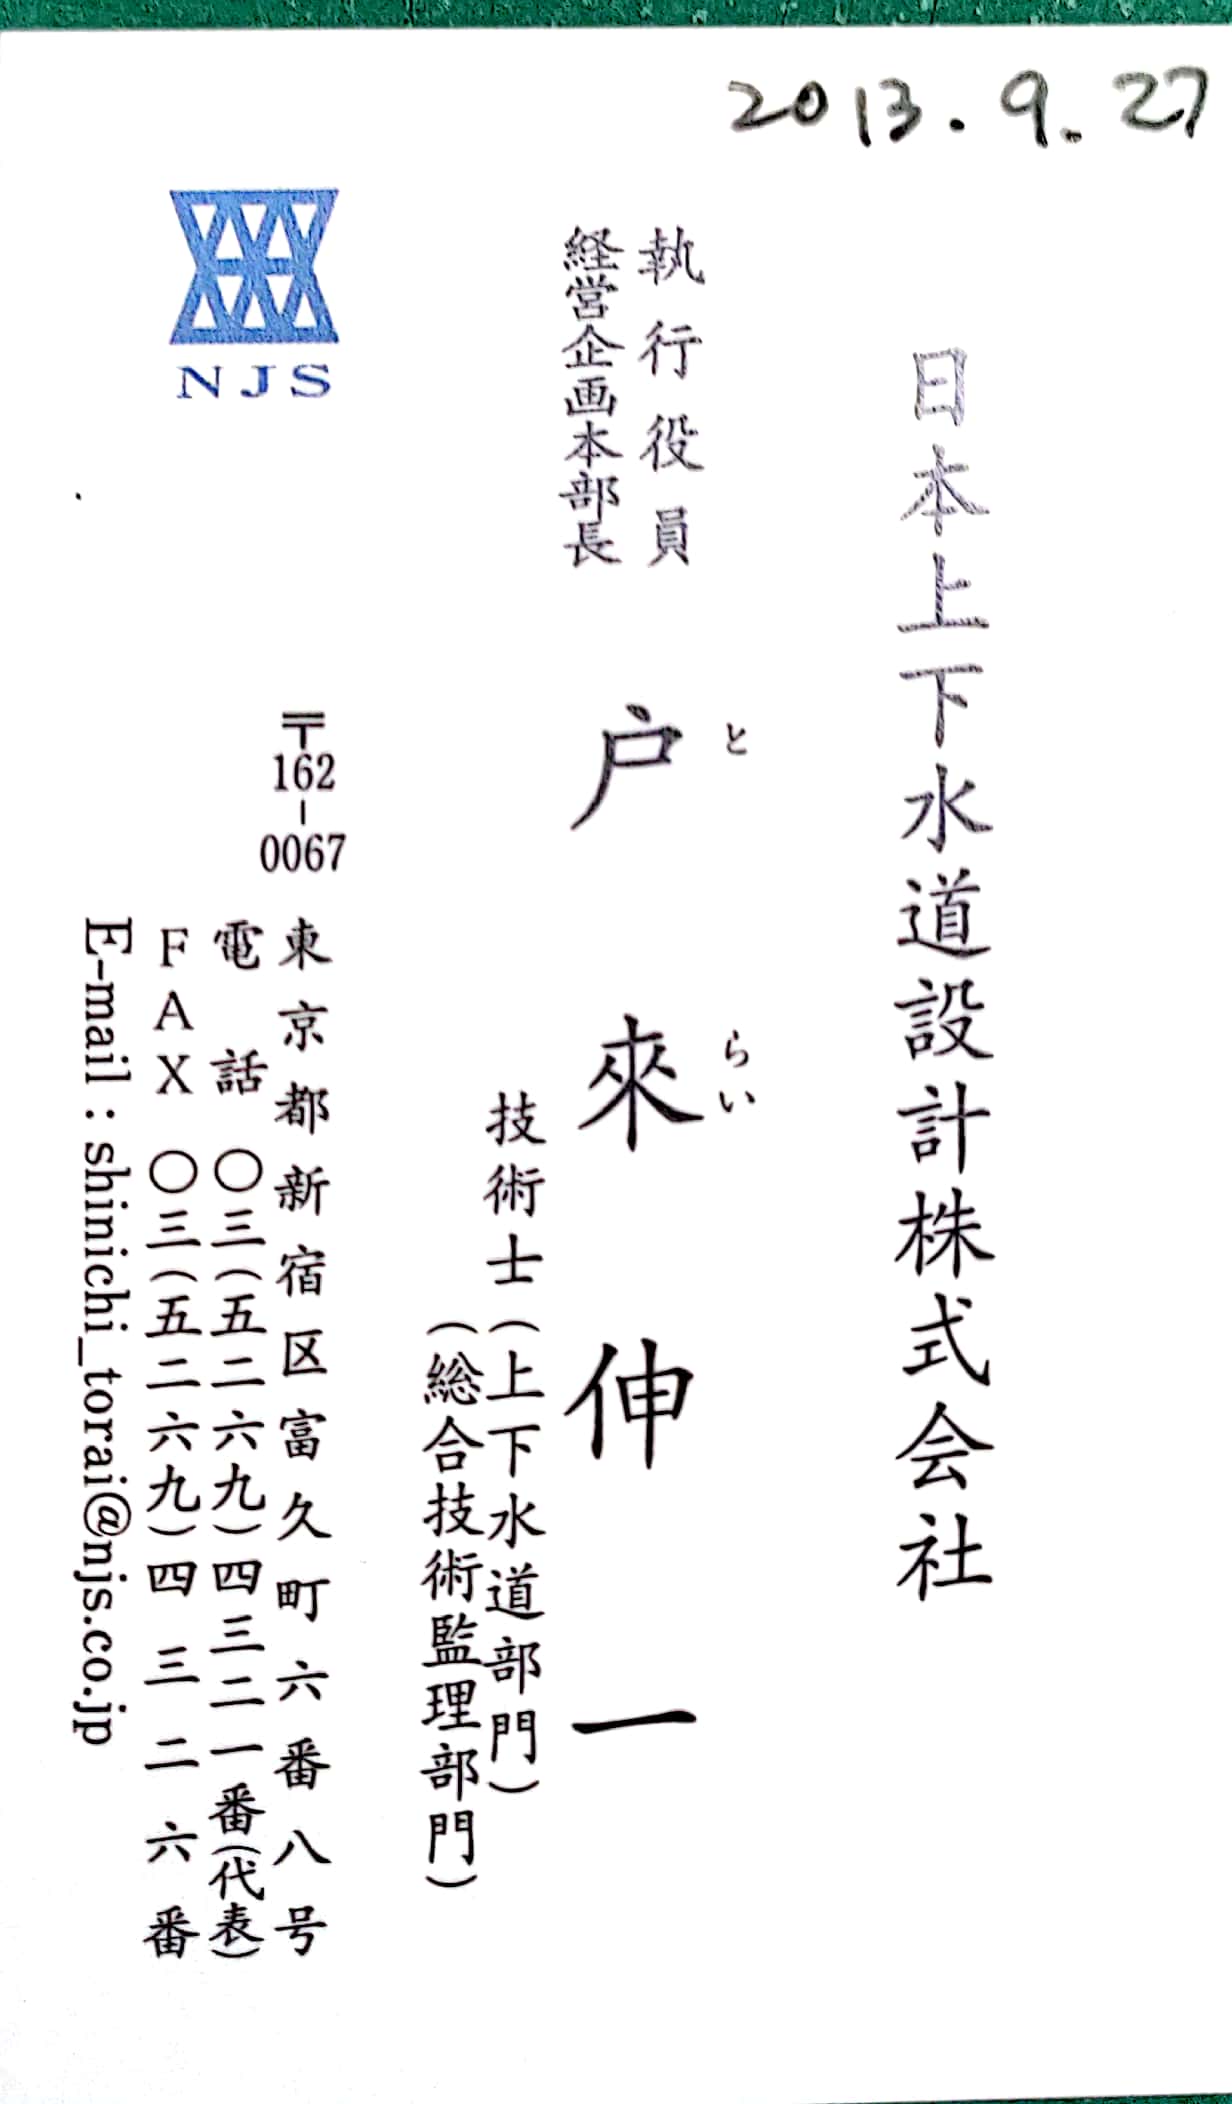 2013.9.27
日本上下水道設計株式会社
執行役員
経営企画本部長
と らい
戸來伸一
技術士(上下水道部門)
(総合技術監理部門)
〒162-0067
東京都新宿区富久町六番八号
電話 〇三(五二六九)四三二一番(代表)
FAX 〇三(五二六九)四三二六番
E-mail : shinichi_torai@njs.co.jp
NJS